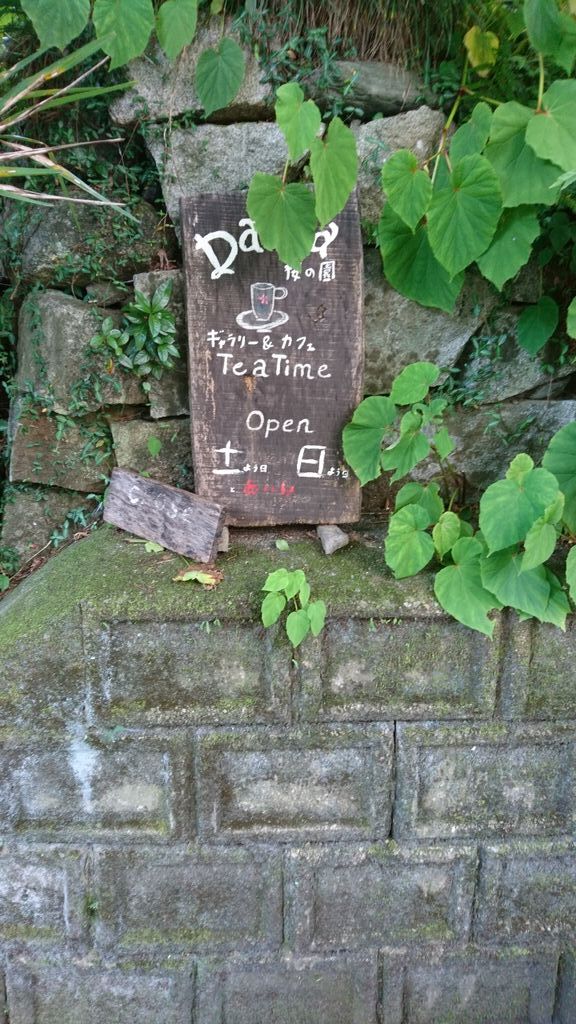 桜の園
ギャラリー & カフェ
TeaTime
Open
土よう日 日よう日
と